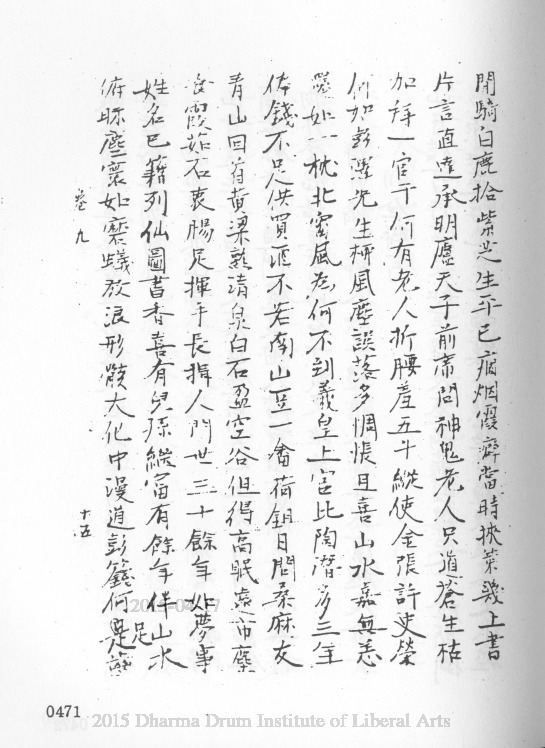 閒騎白鹿拾紫芝生平已痼烟霞癖當時挾策幾上書
片言直達承明廬天子前席問神鬼老人只道蒼生枯
加拜一官于何有老人折腰羞五斗縱使金張許史榮
何如彭澤先生柳風塵誤落多惆悵且喜山水嘉無恙
如一枕北窗風為何不到羲皇上官比陶潛多三年
俸錢不足供買酒不若南山豆一畬荷鉏日問桑麻友
青山回首黄梁熟清泉白石盈空谷但得高眠遠市廛
食霞茹石衷腸足揮手長揖人間世三十餘年如夢事
姓名已籍列仙圖書香喜有兒孫繼富有餘年伴山水
俯眎塵寰如磨蟻放浪形骸大化中漫道彭籛何足是
卷九
十五
2015-04-17
0471
2015 Dharma Drum Institute of Liberal Arts